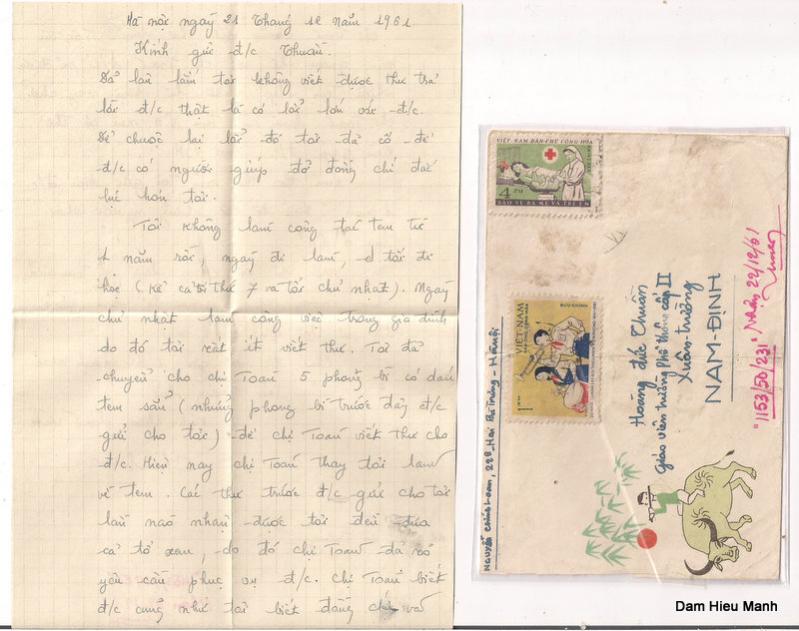 Hà nội ngày 21 Tháng 12 năm 1961
Kính gửi đ/c Thuần.
Đã lâu lắm tôi không viết được thư trả
lời đ/c thật là có lỗi lớn với đ/c.
Để chuộc lại lỗi đó tôi đã cố để
đ/c có người giúp đỡ đồng chí đắc
lực hơn tôi.
Tôi không làm công tác tem từ
1 năm rồi, ngày đi làm, tối đi
học (kể cả thứ 7 và tối chủ nhật). Ngày
chủ nhật làm công việc trong gia đình
do đó tôi rất ít viết thư. Tôi đã
chuyển cho chị Toàn 5 phong bì có dán
tem sẵn (những phong bì trước đây đ/c
gửi cho tôi) để chị Toàn viết thư cho
đ/c. Hiện nay chị Toàn thay tôi làm
về tem. Các thư trước đ/c gửi cho tôi
lần nào nhận được tôi đều đưa
cả tổ xem, do đó chị Toàn đã có
yêu cầu phục vụ đ/c. Chị Toàn biết
đ/c cũng như tôi biết đồng chí và
VIỆT-NAM DÂN-CHỦ CỘNG HÒA
4 xu
BẢO VỆ BÀ MẸ VÀ TRẺ EM
BƯU CHÍNH
VIỆT-NAM
DÂN CHỦ CỘNG HÒA
1 xu
NGUYỄN Chính Lam, 22B Hai Bà Trưng - Hà nội
Hoàng đức Thuần
Giáo viên trường Phổ thông cấp II
Xuân-trường
NAM-ĐỊNH
"1153/50/231" Nhận 22/12/61
Dam Hieu Manh